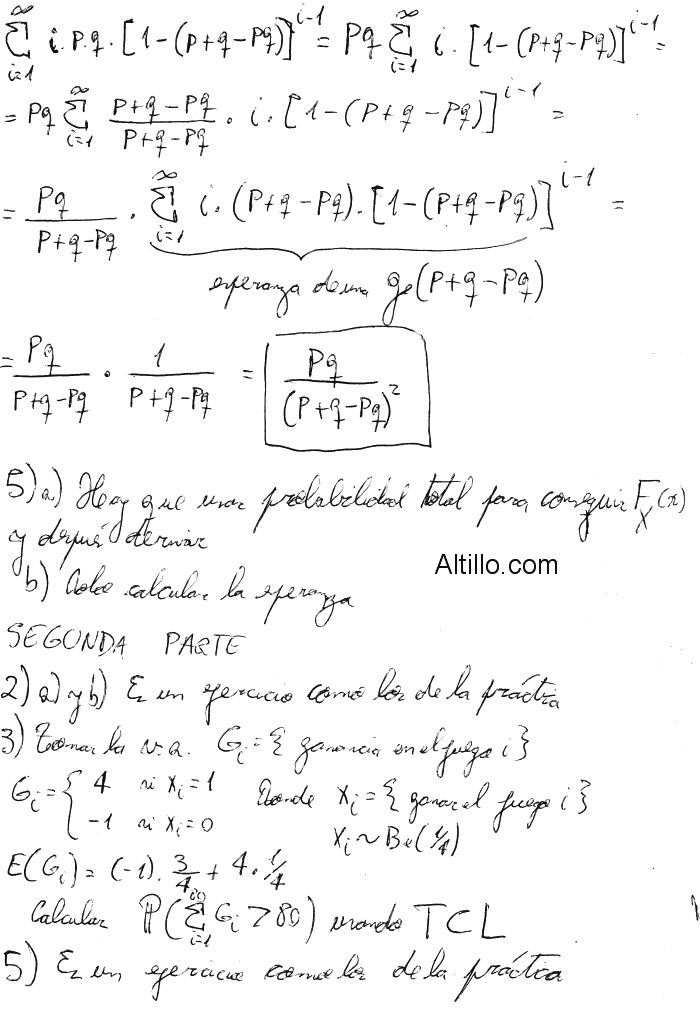 ∞∑i=1 i.p.q.[1-(p+q-pq)]^(i-1) = pq ∞∑i=1 i.[1-(p+q-pq)]^(i-1) =
= pq ∞∑i=1 (p+q-pq)/(p+q-pq) . i.[1-(p+q-pq)]^(i-1) =
= pq/(p+q-pq) . ∞∑i=1 i.(p+q-pq).[1-(p+q-pq)]^(i-1) =
esperanza de una ge(p+q-pq)
= pq/(p+q-pq) . 1/(p+q-pq) = pq/(p+q-pq)²
5) a) Hay que usar probabilidad total para conseguir F_X(x)
y después derivar
Altillo.com
b) calcular la esperanza
SEGUNDA PARTE
2) a) y b) Es un ejercicio como los de la práctica
3) Tomar la v.a. Gi = { ganancia en el juego i }
Gi = { 4 si Xi = 1 Donde Xi = { ganar el juego i }
-1 si Xi = 0 Xi ~ Be(1/4)
E(Gi) = (-1) . 3/4 + 4 . 1/4
Calcular P(∑i=1 Gi > 80) usando TCL
5) Es un ejercicio como los de la práctica